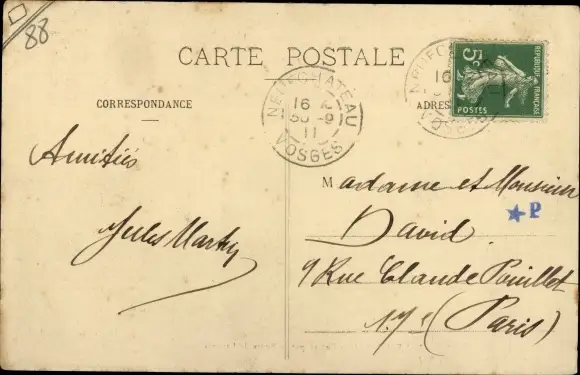 88
CARTE POSTALE
CORRESPONDANCE
ADRES
NEUFCHATEAU
16
30-9
11
VOSGES
5c
REPUBLIQUE FRANÇAISE
POSTES
Amitiés
Jules Marky
Madame et Monsieur
David
P
9 Rue Claude Pouillet
17e (Paris)